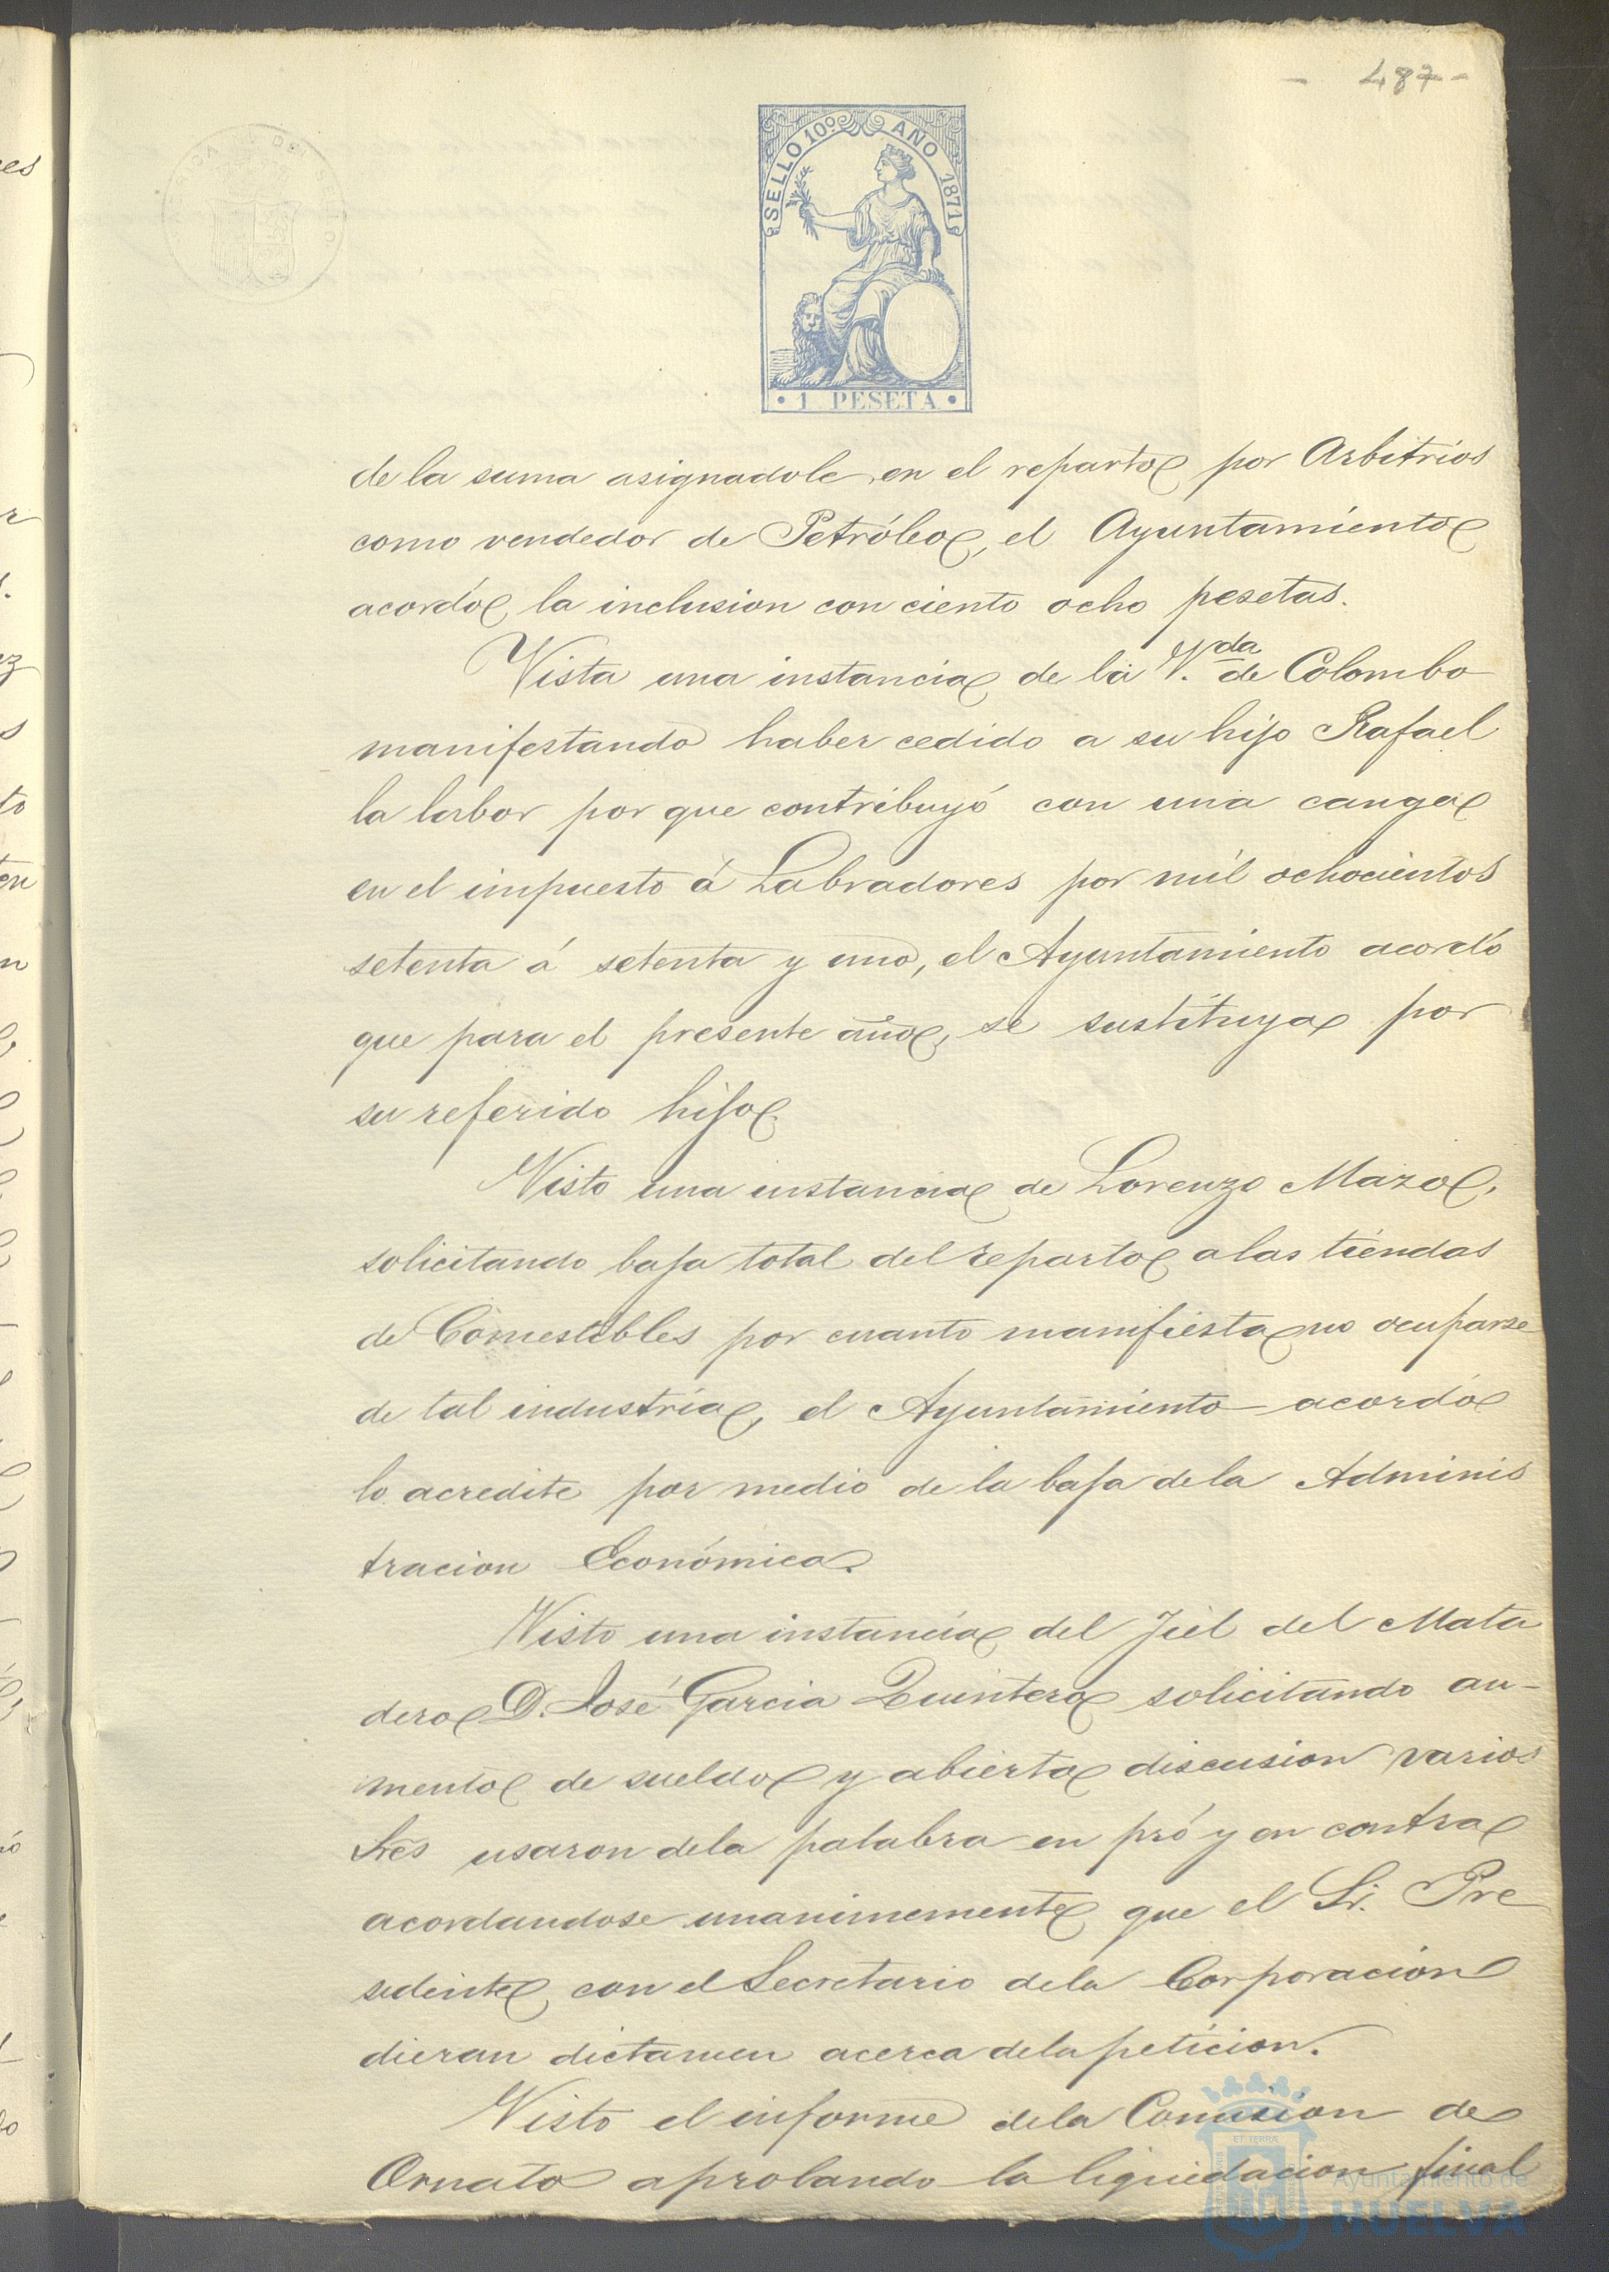 - 487 -
SELLO 10º AÑO 1871
· 1 PESETA ·
de la suma asignadole en el reparto por Arbitrios
como vendedor de Petróleo, el Ayuntamiento
acordó la inclusion con ciento ocho pesetas.
Vista una instancia de la V.da de Colombo
manifestando haber cedido a su hijo Rafael
la labor por que contribuyó con una canga
en el impuesto á Labradores por mil ochocientos
setenta á setenta y uno, el Ayuntamiento acordó
que para el presente año, se sustituya por
su referido hijo.
Visto una instancia de Lorenzo Mazo,
solicitando baja total del reparto a las tiendas
de Comestibles por cuanto manifiesta no ocuparse
de tal industria, el Ayuntamiento acordó
lo acredite por medio de la baja dela Adminis
tracion Económica.
Visto una instancia del Fiel del Mata
dero D. José Garcia Quintero solicitando au-
mento de sueldo y abierta discusion varios
Sres usaron dela palabra en pró y en contra
acordandose unanimemente que el Sr. Pre
sidente con el Secretario dela Corporacion
dieran dictamen acerca dela peticion.
Visto el informe dela Comision de
Ornato aprobando la liquidacion final
ET TERRÆ
Ayuntamiento de
HUELVA